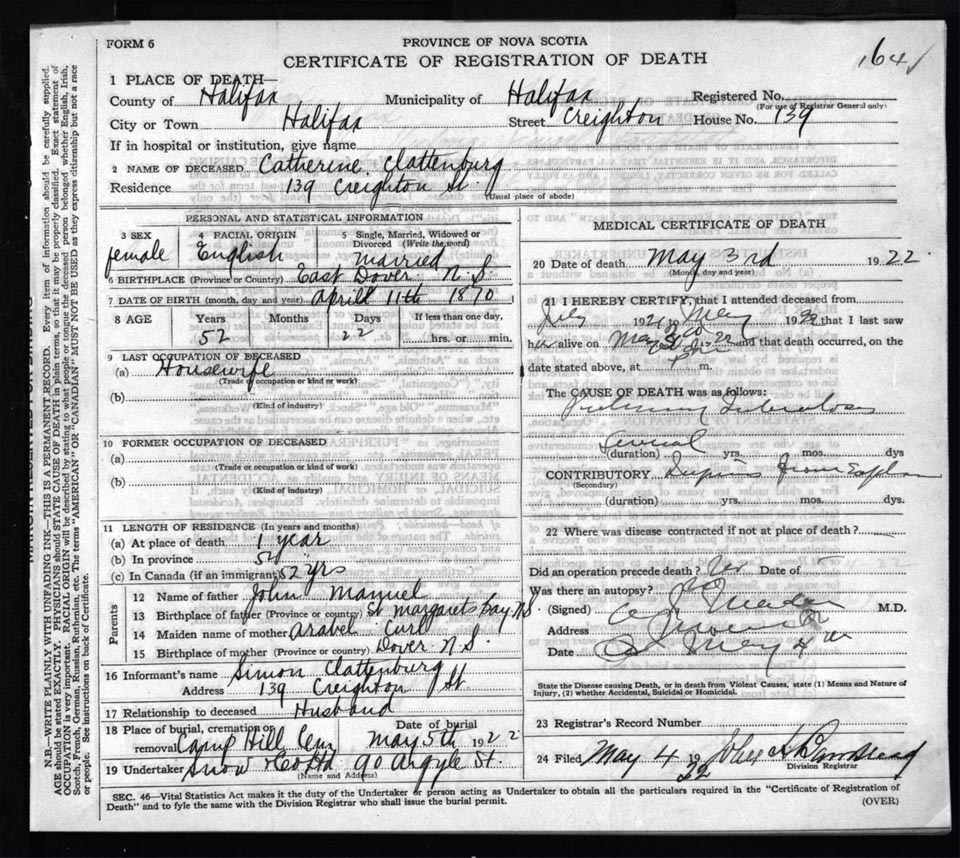 FORM 6
PROVINCE OF NOVA SCOTIA
CERTIFICATE OF REGISTRATION OF DEATH
164
1 PLACE OF DEATH—
County of Halifax Municipality of Halifax Registered No.
(For use of Registrar General only)
City or Town Halifax Street Creighton House No. 139
If in hospital or institution, give name
2 NAME OF DECEASED Catherine Clattenburg
Residence 139 Creighton St.
(Usual place of abode)
PERSONAL AND STATISTICAL INFORMATION
3 SEX 4 RACIAL ORIGIN 5 Single, Married, Widowed or Divorced (Write the word)
female English married
6 BIRTHPLACE (Province or Country) East Dover N.S.
7 DATE OF BIRTH (month, day and year) April 11th 1870
8 AGE Years Months Days If less than one day,
52 22 hrs. or min.
9 LAST OCCUPATION OF DECEASED
(a) Housewife
(Trade or occupation or kind or work)
(b)
(Kind of industry)
10 FORMER OCCUPATION OF DECEASED
(a)
(Trade or occupation or kind or work)
(b)
(Kind of industry)
11 LENGTH OF RESIDENCE (In years and months)
(a) At place of death 1 year
(b) In province
(c) In Canada (if an immigrant) 52 yrs
Parents
12 Name of father John Manuel
13 Birthplace of father (Province or country) St Margarets Bay NS
14 Maiden name of mother Arabel Curl
15 Birthplace of mother (Province or country) Dover N.S.
16 Informant's name Simon Clattenburg
Address 139 Creighton St.
17 Relationship to deceased Husband
18 Place of burial, cremation or removal Camp Hill Cem Date of burial May 5th 1922
19 Undertaker Snow & Co Ltd 90 Argyle St.
(Name and Address)
MEDICAL CERTIFICATE OF DEATH
20 Date of death May 3rd 1922
(Month, day and year)
21 I HEREBY CERTIFY, that I attended deceased from
July 1921 to May 1922 that I last saw
her alive on May and that death occurred, on the
date stated above, at m.
The CAUSE OF DEATH was as follows:
Pulmonary Tuberculosis
Several
(duration) yrs. mos. dys
CONTRIBUTORY from
(Secondary)
(duration) yrs. mos. dys.
22 Where was disease contracted if not at place of death?
Did an operation precede death? No Date of
Was there an autopsy? No
(Signed) M.D.
Address
Date May 4th
State the Disease causing Death, or in death from Violent Causes, state (1) Means and Nature of
Injury, (2) whether Accidental, Suicidal or Homicidal.
23 Registrar's Record Number
24 Filed May 4 1922
Division Registrar
SEC. 46—Vital Statistics Act makes it the duty of the Undertaker or person acting as Undertaker to obtain all the particulars required in the "Certificate of Registration of
Death" and to fyle the same with the Division Registrar who shall issue the burial permit.
(OVER)
N.B.—WRITE PLAINLY WITH UNFADING INK—THIS IS A PERMANENT RECORD. Every item of information should be carefully supplied.
AGE should be stated EXACTLY. PHYSICIANS should STATE CAUSE OF DEATH in plain terms, so that it may be properly classified. Exact statement of
OCCUPATION is very important. RACIAL ORIGIN will be described by stating to what people or tongue the deceased person belonged whether English, Irish,
Scotch, French, German, Russian, Ruthenian, etc. The terms "AMERICAN" or "CANADIAN" MUST NOT BE USED as they express citizenship but not a race
or people. See instructions on back of Certificate.